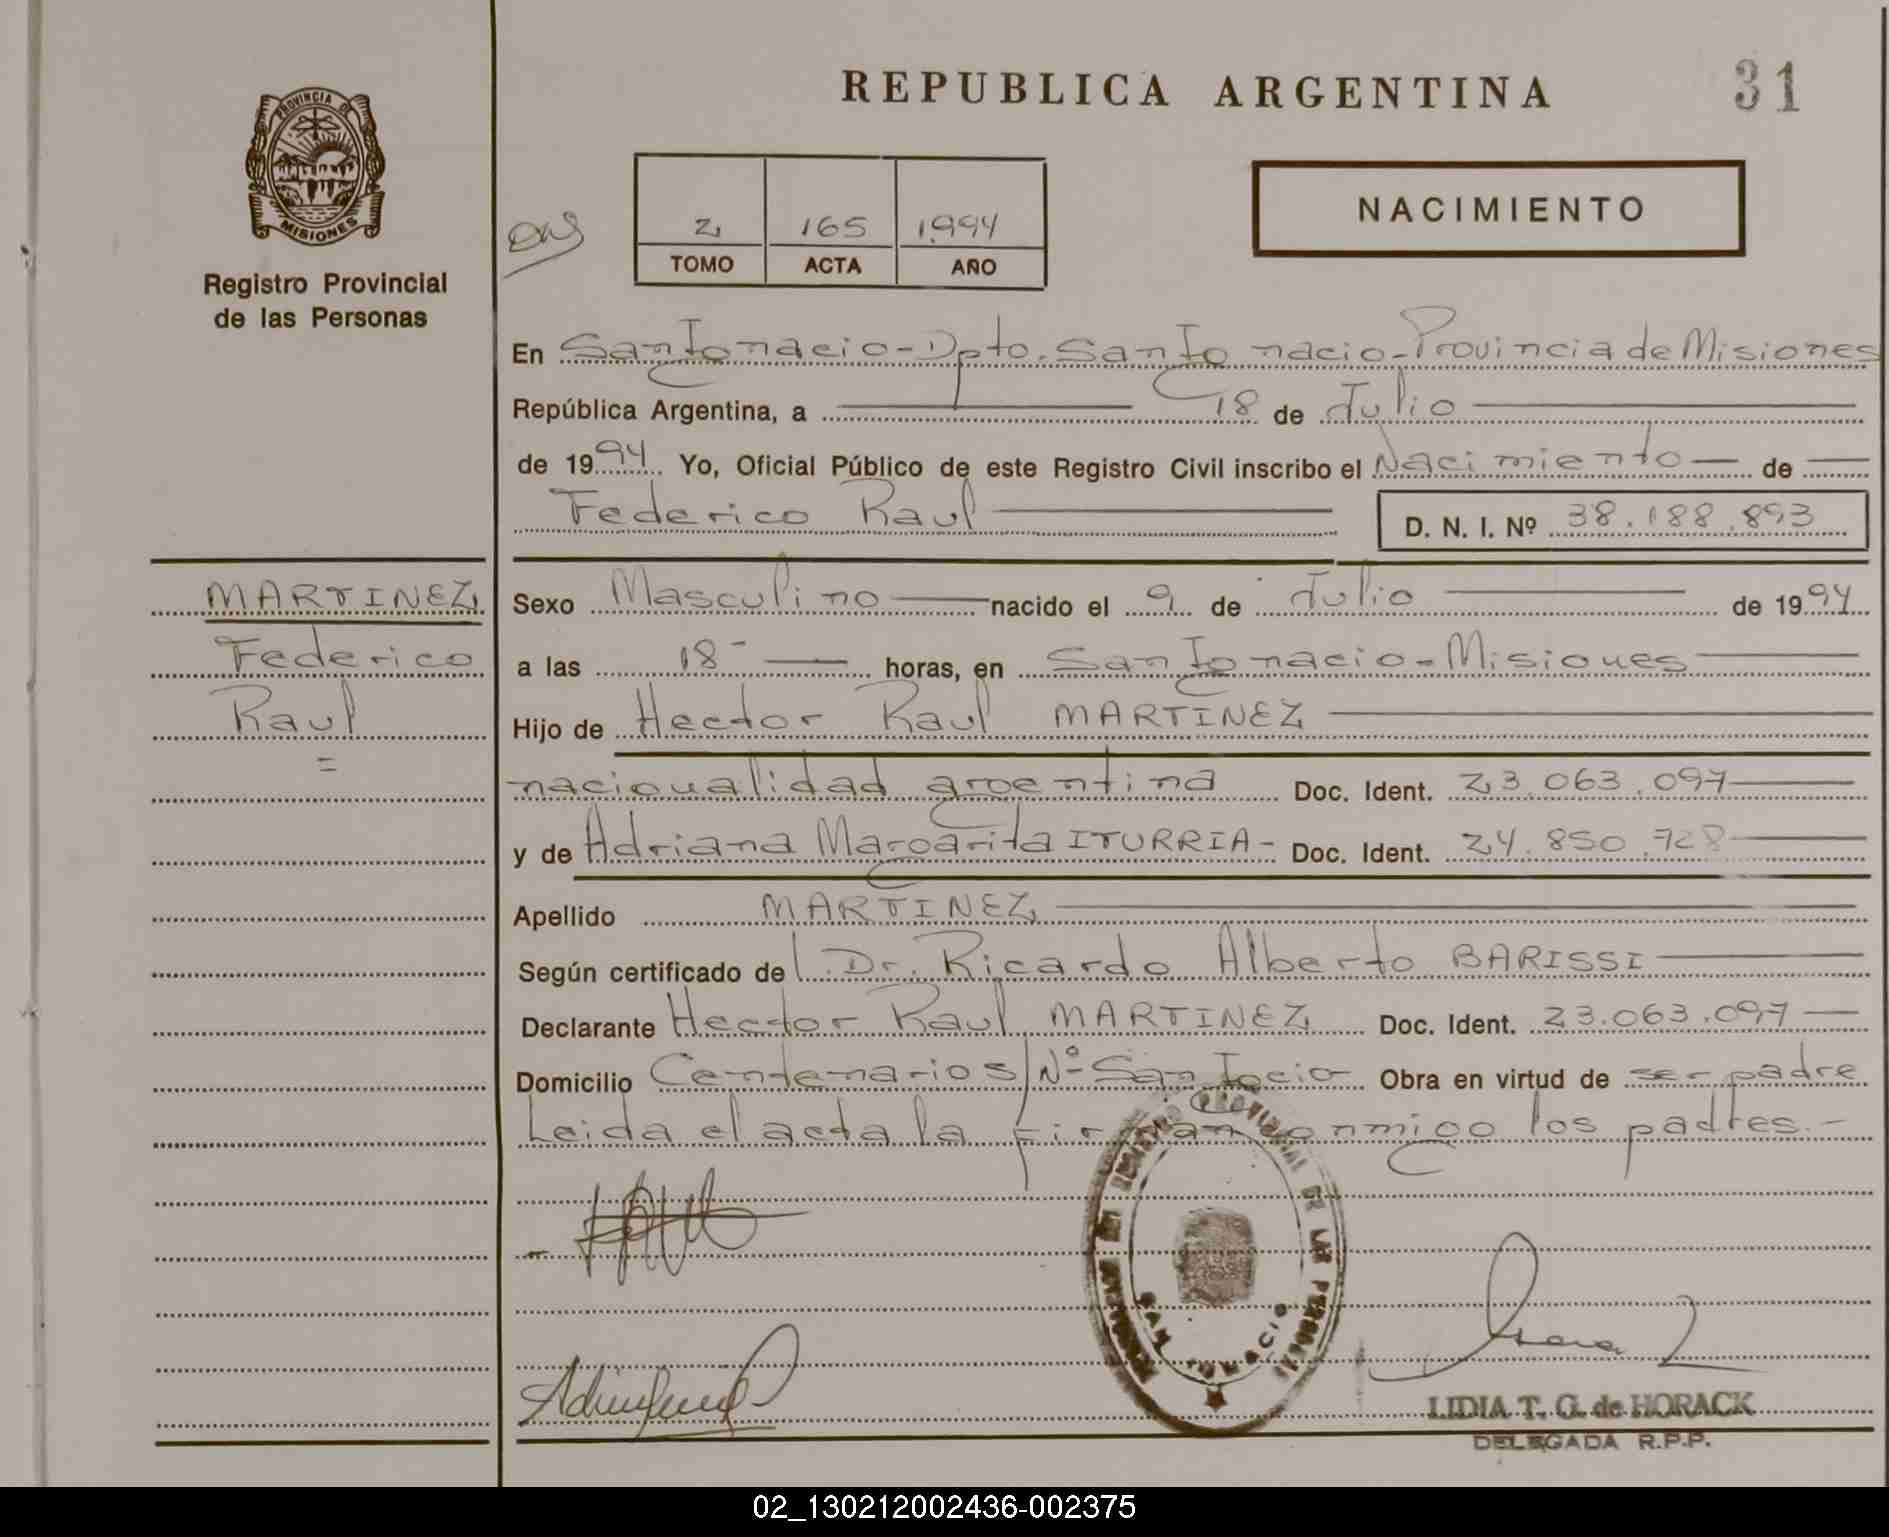 REPUBLICA ARGENTINA
31
PROVINCIA DE
MISIONES
Registro Provincial
de las Personas
2 165 1994
TOMO ACTA AÑO
NACIMIENTO
En San Ignacio - Dpto. San Ignacio - Provincia de Misiones
República Argentina, a 18 de Julio
de 1994 Yo, Oficial Público de este Registro Civil inscribo el Nacimiento de
Federico Raul
D. N. I. Nº 38.188.893
MARTINEZ
Federico
Raul
=
Sexo Masculino nacido el 9 de Julio de 1994
a las 18 horas, en San Ignacio - Misiones
Hijo de Hector Raul MARTINEZ
nacionalidad argentina Doc. Ident. 23.063.097
y de Adriana Margarita ITURRIA - Doc. Ident. 24.850.728
Apellido MARTINEZ
Según certificado de Dr. Ricardo Alberto BARISSI
Declarante Hector Raul MARTINEZ Doc. Ident. 23.063.097
Domicilio Centenario s/Nº San Igcio Obra en virtud de ser padre
Leida el acta la firman conmigo los padres.-
REGISTRO PROVINCIAL DE LAS PERSONAS
SAN IGNACIO
LIDIA T. G. de HORACK
DELEGADA R.P.P.
02_130212002436-002375